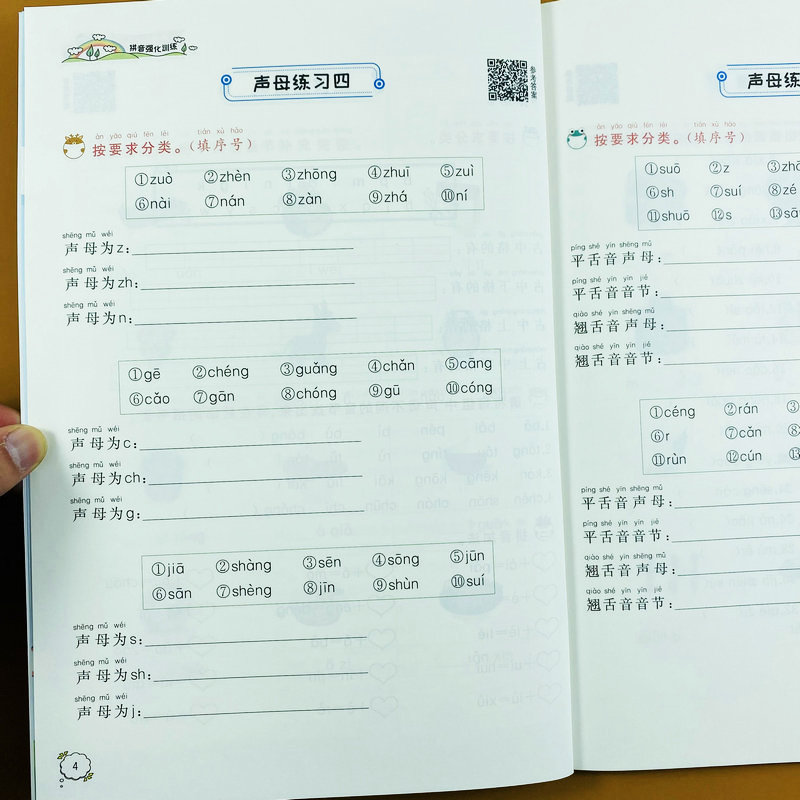 拼音强化训练
声母练习四
参考答案
àn yāo qiú fēn lèi tián xù hào
按要求分类。(填序号)
①zuò ②zhèn ③zhōng ④zhuī ⑤zuì
⑥nài ⑦nán ⑧zàn ⑨zhá ⑩ní
shēng mǔ wéi
声母为z:
shēng mǔ wéi
声母为zh:
shēng mǔ wéi
声母为n:
①gē ②chéng ③guǎng ④chǎn ⑤cāng
⑥cǎo ⑦gān ⑧chóng ⑨gū ⑩cóng
shēng mǔ wéi
声母为c:
shēng mǔ wéi
声母为ch:
shēng mǔ wéi
声母为g:
①jiā ②shàng ③sēn ④sōng ⑤jūn
⑥sān ⑦shèng ⑧jīn ⑨shùn ⑩suí
shēng mǔ wéi
声母为s:
shēng mǔ wéi
声母为sh:
shēng mǔ wéi
声母为j:
4
声母练
àn yāo qiú fēn lèi tián xù hào
按要求分类。(填序号)
①suō ②z
⑥sh ⑦suí ⑧zé
⑪shuō ⑫s
píng shé yīn shēng mǔ
平舌音声母:
píng shé yīn yīn jié
平舌音音节:
qiào shé yīn shēng mǔ
翘舌音声母:
qiào shé yīn yīn jié
翘舌音音节:
①céng ②rán ③
⑥r ⑦cǎn
⑪rùn ⑫cún
píng shé yīn shēng mǔ
平舌音声母:
píng shé yīn yīn jié
平舌音音节:
qiào shé yīn shēng mǔ
翘舌音声母:
qiào shé yīn yīn jié
翘舌音音节: